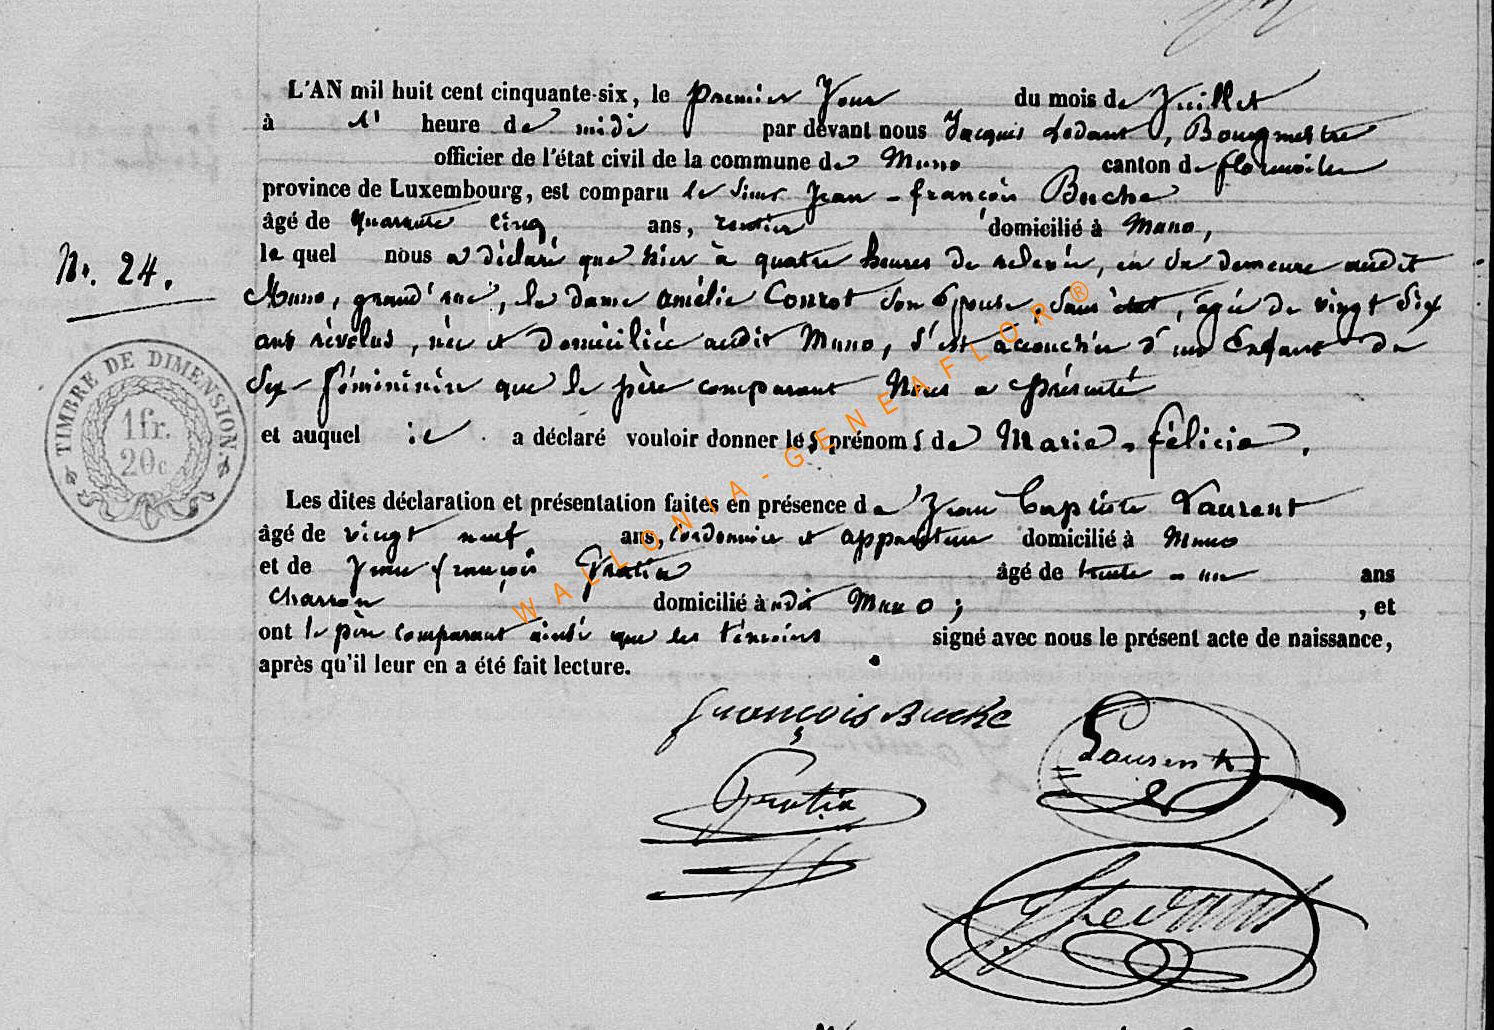 L'AN mil huit cent cinquante-six, le premier Jour du mois de Juillet
à 1' heure de midi par devant nous Jacques Ledant, Bourgmestre
officier de l'état civil de la commune de Muno canton de florenville
province de Luxembourg, est comparu le Sieur Jean-françois Buche
âgé de quarante cinq ans, rentier domicilié à Muno,
le quel nous a déclaré que hier à quatre heures de relevée, en sa demeure audit
N°. 24.
Muno, grand'rue, la dame Amélie Conrot son Epouse, Sans état, agée de vingt Six
ans révolus, née et domiciliée audit Muno, s'est accouchée d'un Enfant de
Sex féminin que le père comparant Nous a présenté
TIMBRE DE DIMENSION.
1 fr.
20 c
et auquel il a déclaré vouloir donner les prénoms de Marie-félicie.
Les dites déclaration et présentation faites en présence de Jean Baptiste Laurent
âgé de vingt neuf ans, Cordonnier et appariteur domicilié à Muno
et de Jean françois Gratia âgé de trente-un ans
charron domicilié à udit Muno; , et
ont le père comparant ainsi que les témoins signé avec nous le présent acte de naissance,
après qu'il leur en a été fait lecture.
françois Buche
Laurent
Gratia
JLedant
WALLONIA-GENEAFLOR®